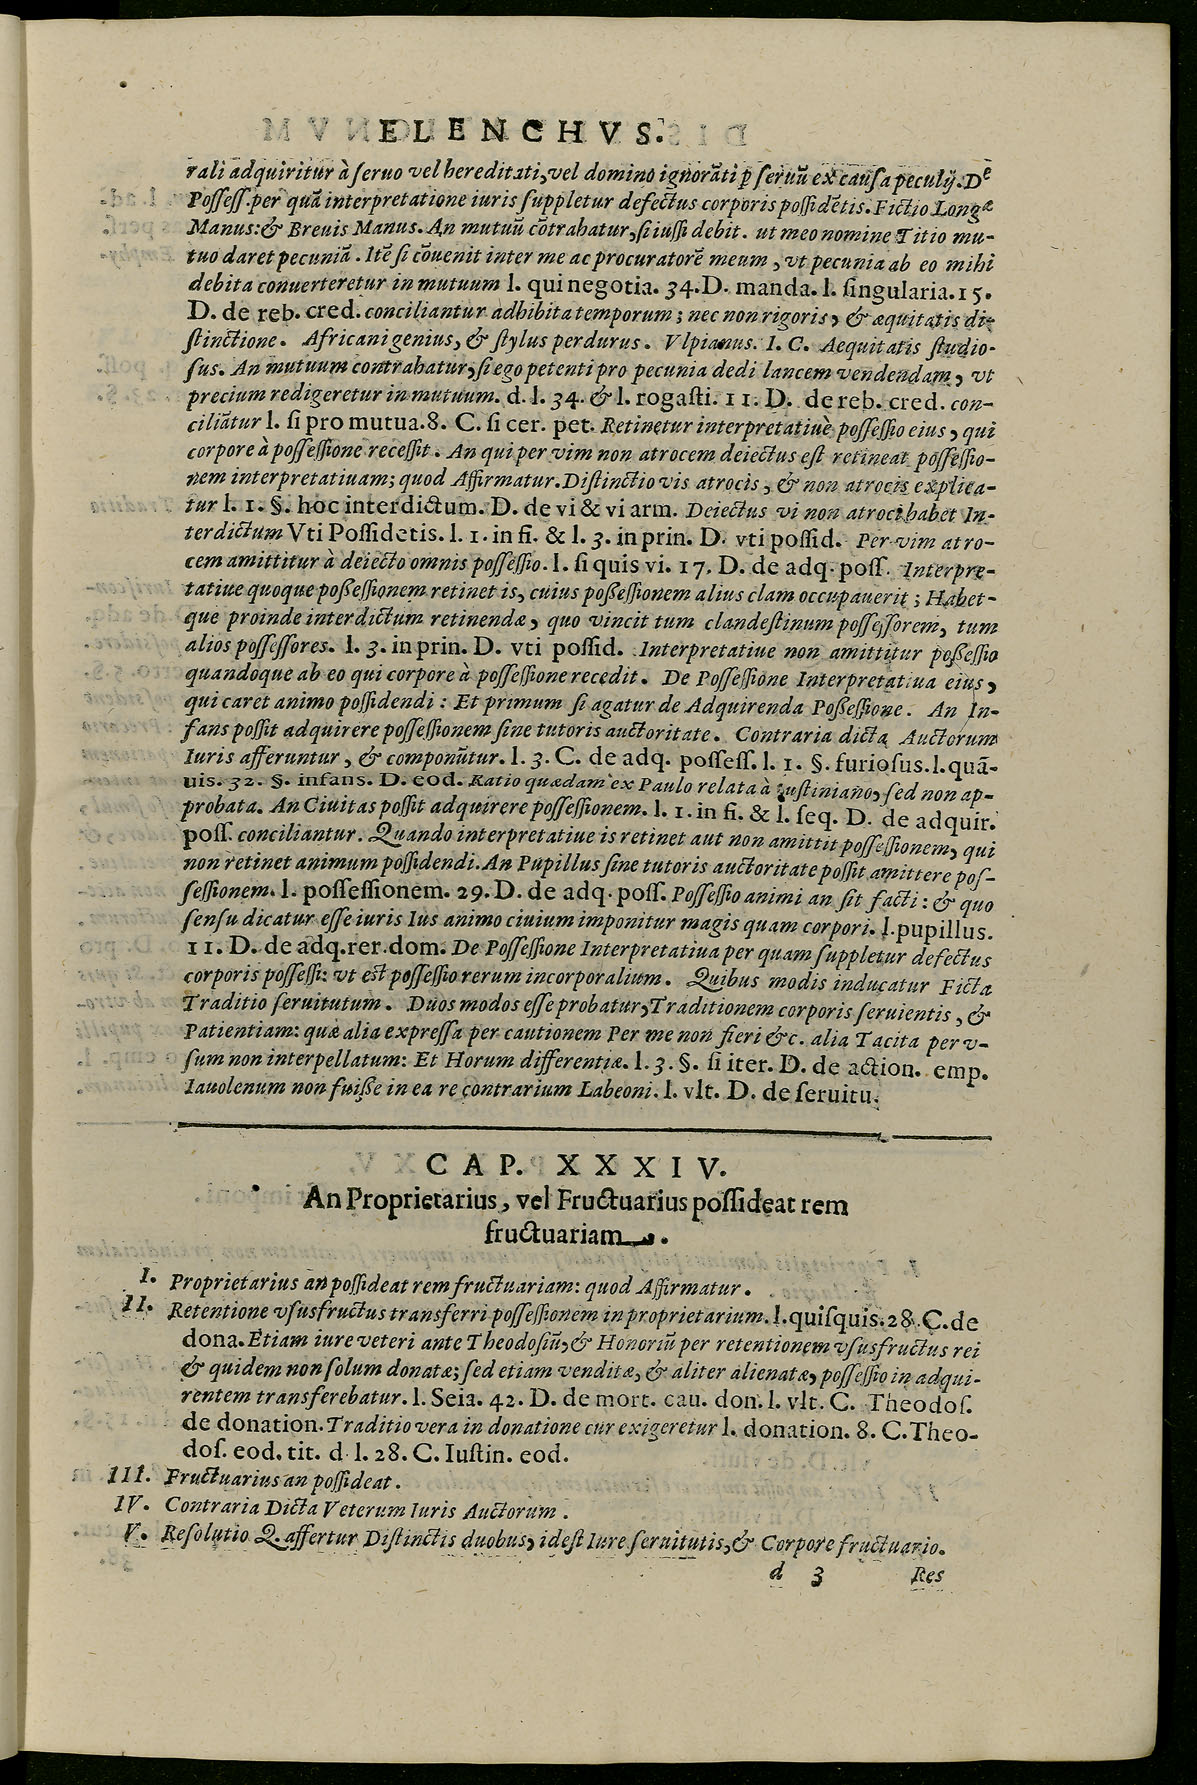 ELENCHVS.
rali adquiritur à seruo vel hereditati, vel domino ignorãti p̱ seruũ ex causa peculij. De
Possess. per quã interpretatione iuris suppletur defectus corporis possidẽtis. Fictio Longæ
Manus: & Breuis Manus. An mutuũ cõtrahatur, si iussi debit. ut meo nomine Titio mu-
tuo daret pecuniã. Itẽ si cõuenit inter me ac procuratorẽ meum, vt pecunia ab eo mihi
debita conuerteretur in mutuum l. qui negotia. 34. D. manda. l. singularia. 15.
D. de reb. cred. conciliantur adhibita temporum; nec non rigoris, & æquitatis di-
stinctione. Africani genius, & stylus perdurus. Vlpianus. I. C. Aequitatis studio-
sus. An mutuum contrahatur, si ego petenti pro pecunia dedi lancem vendendam, vt
precium redigeretur in mutuum. d. l. 34. & l. rogasti. 11. D. de reb. cred. con-
ciliãtur l. si pro mutua. 8. C. si cer. pet. Retinetur interpretatiuè possessio eius, qui
corpore à possessione recessit. An qui per vim non atrocem deiectus est retineat possessio-
nem interpretatiuam; quod Affirmatur. Distinctio vis atrocis, & non atrocis explica-
tur l. 1. §. hoc interdictum. D. de vi & vi arm. Deiectus vi non atroci habet In-
terdictum Vti Possidetis. l. 1. in fi. & l. 3. in prin. D. vti possid. Per vim atro-
cem amittitur à deiecto omnis possessio. l. si quis vi. 17. D. de adq. poss. Interpre-
tatiue quoque possessionem retinet is, cuius possessionem alius clam occupauerit; Habet-
que proinde interdictum retinendæ, quo vincit tum clandestinum possessorem, tum
alios possessores. l. 3. in prin. D. vti possid. Interpretatiue non amittitur possessio
quandoque ab eo qui corpore à possessione recedit. De Possessione Interpretatiua eius,
qui caret animo possidendi: Et primum si agatur de Adquirenda Possessione. An In-
fans possit adquirere possessionem sine tutoris auctoritate. Contraria dicta Auctorum
Iuris afferuntur, & componũtur. l. 3. C. de adq. possess. l. 1. §. furiosus. l. quã-
uis. 32. §. infans. D. eod. Ratio quædam ex Paulo relata à Iustiniano, sed non ap-
probata. An Ciuitas possit adquirere possessionem. l. 1. in fi. & l. seq. D. de adquir.
poss. conciliantur. Quando interpretatiue is retinet aut non amittit possessionem, qui
non retinet animum possidendi. An Pupillus sine tutoris auctoritate possit amittere pos-
sessionem. l. possessionem. 29. D. de adq. poss. Possessio animi an sit facti: & quo
sensu dicatur esse iuris Ius animo ciuium imponitur magis quam corpori. l. pupillus.
11. D. de adq. rer. dom. De Possessione Interpretatiua per quam suppletur defectus
corporis possessi: vt est possessio rerum incorporalium. Quibus modis inducatur Ficta
Traditio seruitutum. Duos modos esse probatur, Traditionem corporis seruientis, &
Patientiam: quæ alia expressa per cautionem Per me non fieri &c. alia Tacita per v-
sum non interpellatum: Et Horum differentiæ. l. 3. §. si iter. D. de action. emp.
Iauolenum non fuisse in ea re contrarium Labeoni. l. vlt. D. de seruitu.
CAP. XXXIV.
An Proprietarius, vel Fructuarius possideat rem
fructuariam.
I. Proprietarius an possideat rem fructuariam: quod Affirmatur.
II. Retentione vsusfructus transferri possessionem in proprietarium. l. quisquis. 28. C. de
dona. Etiam iure veteri ante Theodosiũ, & Honoriũ per retentionem vsusfructus rei
& quidem non solum donatæ; sed etiam venditæ, & aliter alienatæ, possessio in adqui-
rentem transferebatur. l. Seia. 42. D. de mort. cau. don. l. vlt. C. Theodos.
de donation. Traditio vera in donatione cur exigeretur l. donation. 8. C. Theo-
dos. eod. tit. d. l. 28. C. Iustin. eod.
III. Fructuarius an possideat.
IV. Contraria Dicta Veterum Iuris Auctorum.
V. Resolutio Q. affertur Distinctis duobus, idest Iure seruitutis, & Corpore fructuario.
d 3 Res